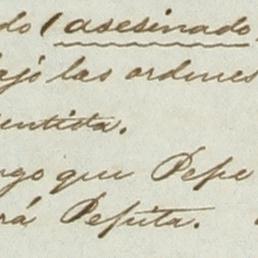 do (asesinado
ajó las ordenes
entista.
go que Pepe
rá Pepita.